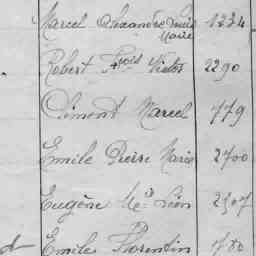 Marcel Alexandre Louis 1234
Marie
Robert Frois Victor 2290
Clément Marcel 779
Emile Pierre Marie 2700
Eugène Me Léon 2307
d Emile Florentin 1780